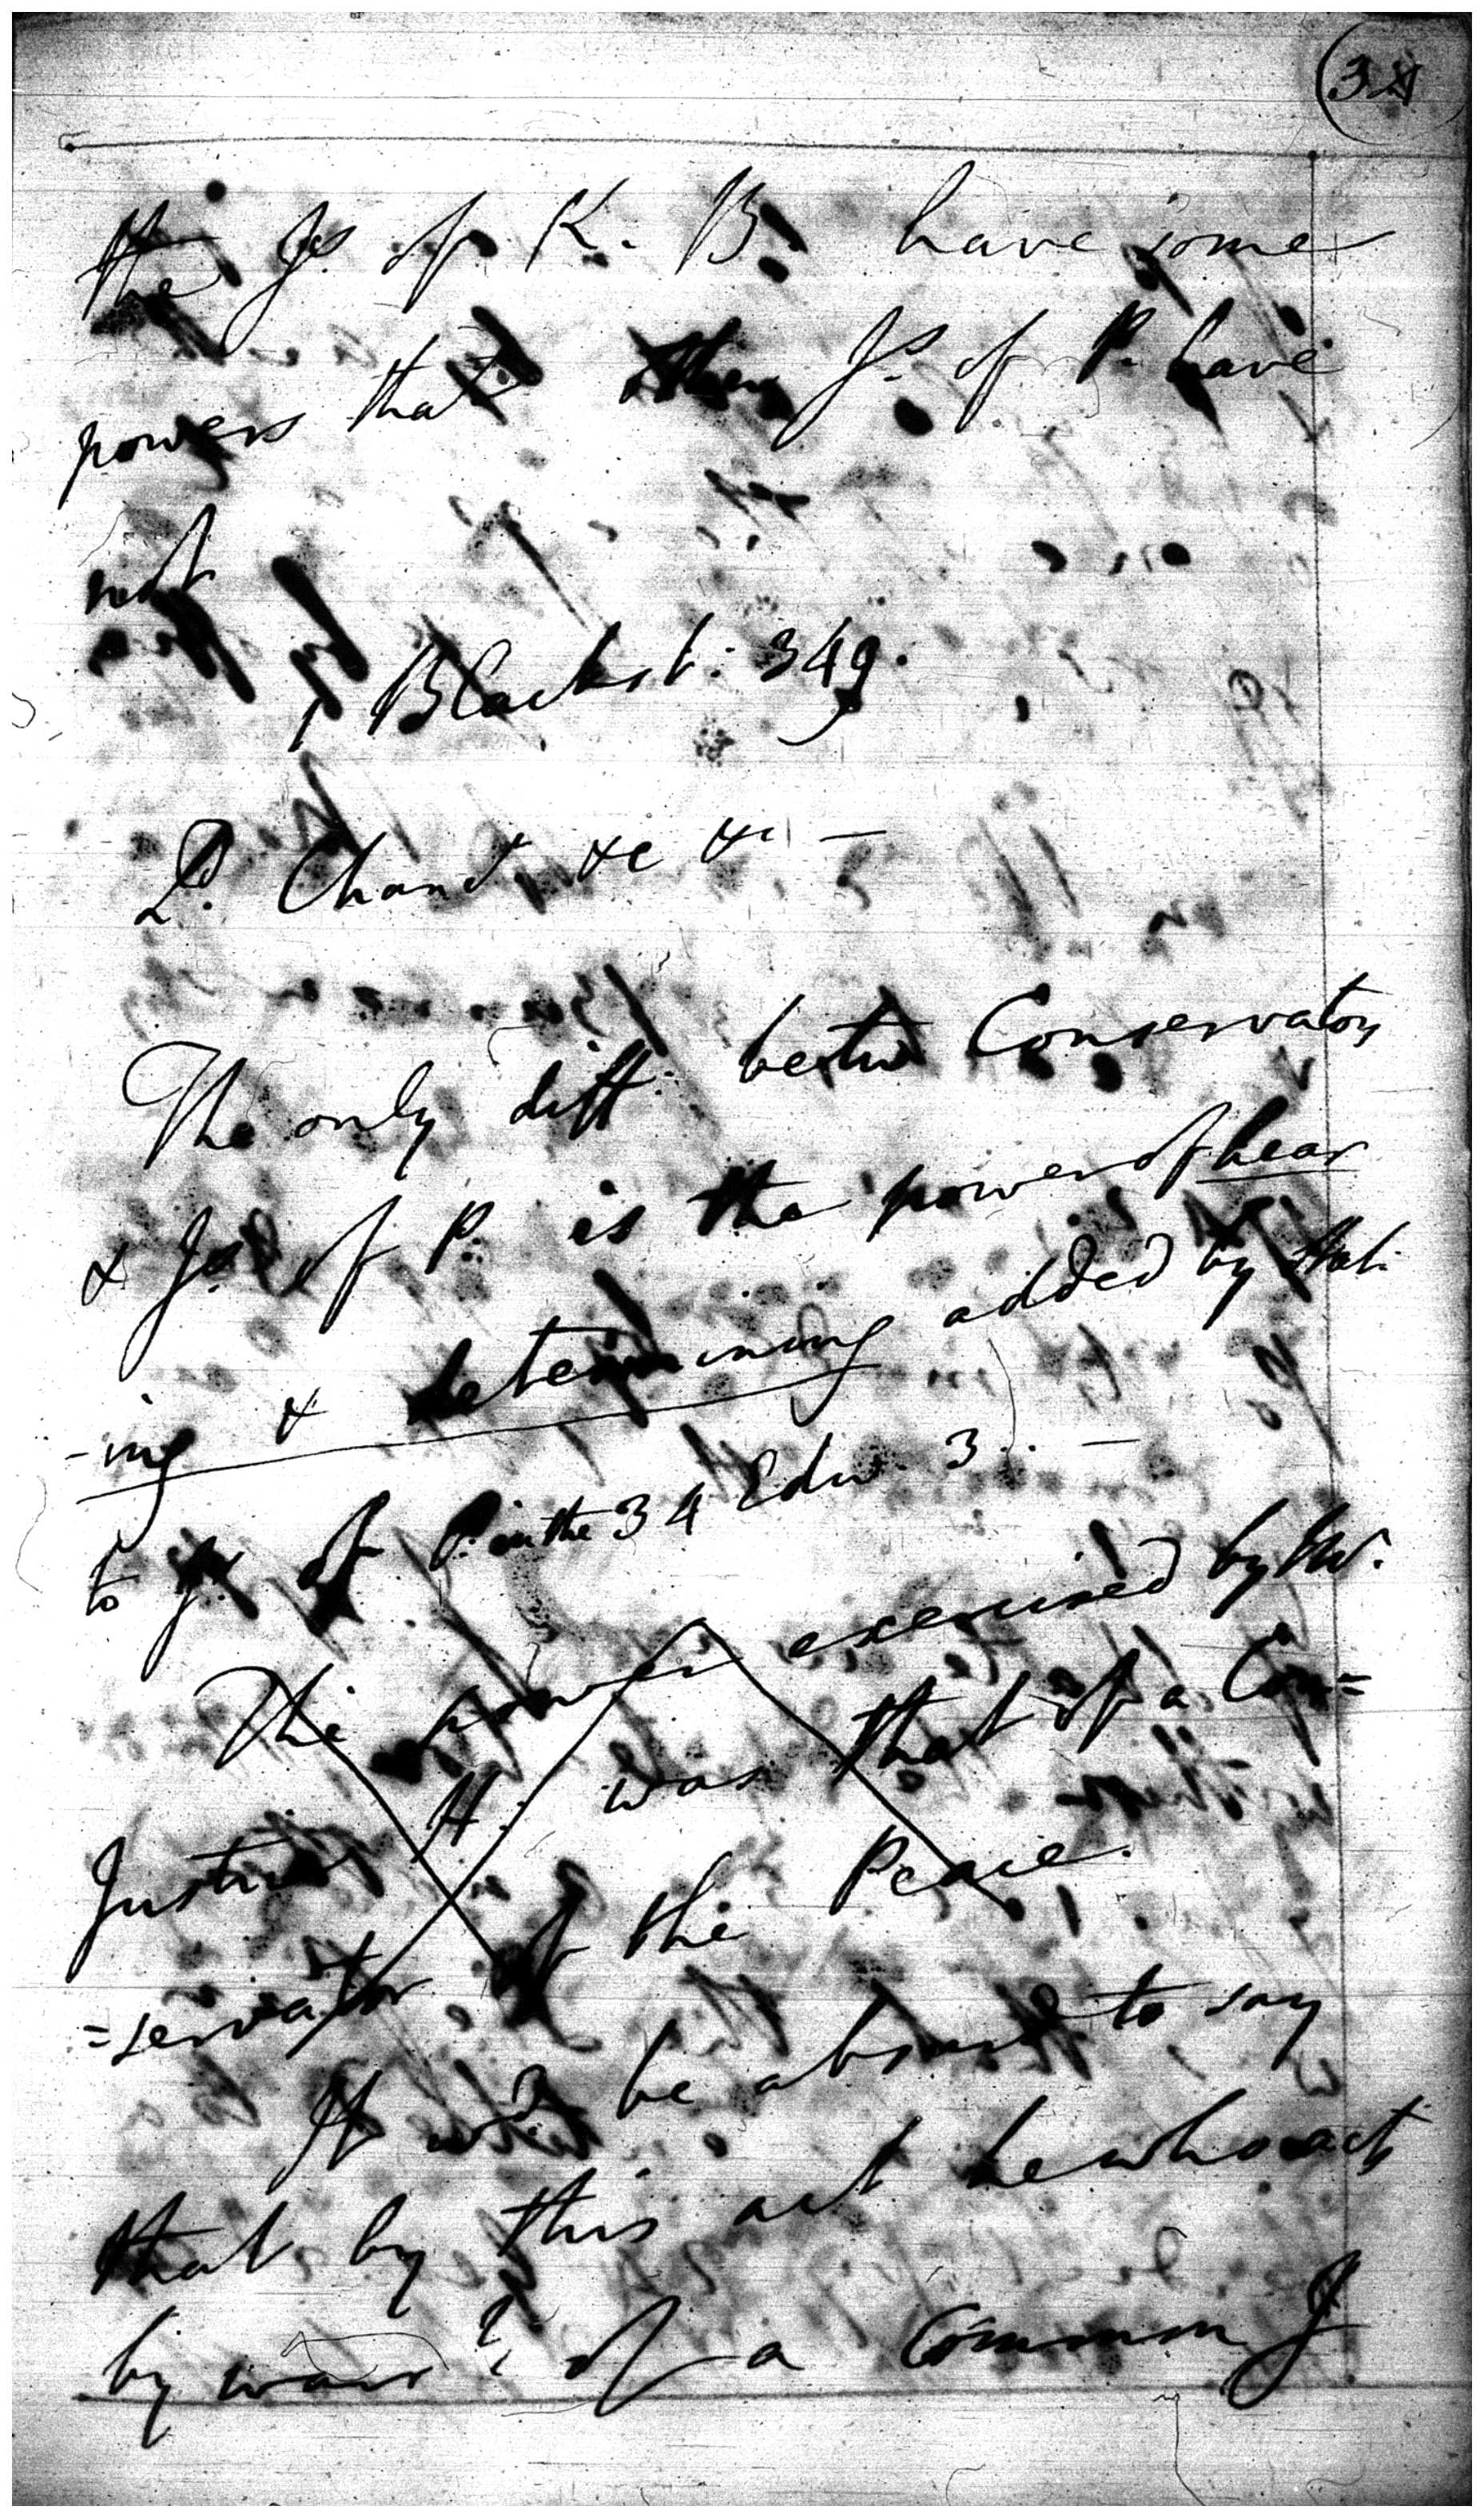 the Js. of K. B. have some
powers that Js. of P. have
not
1 Blackst: 349.
Ld. Chanr. &c &c —
The only diff: betw Conservators
& Js. of P. is the power of hear
-ing & determining added by Stat.
to Js. of P. in the 34 Edw. 3. —
The power exercised by Mr.
Justice H. was that of a Con=
=servator of the Peace.
It wd. be absurd to say
that by this act he who acts
by warrt. of a Common J